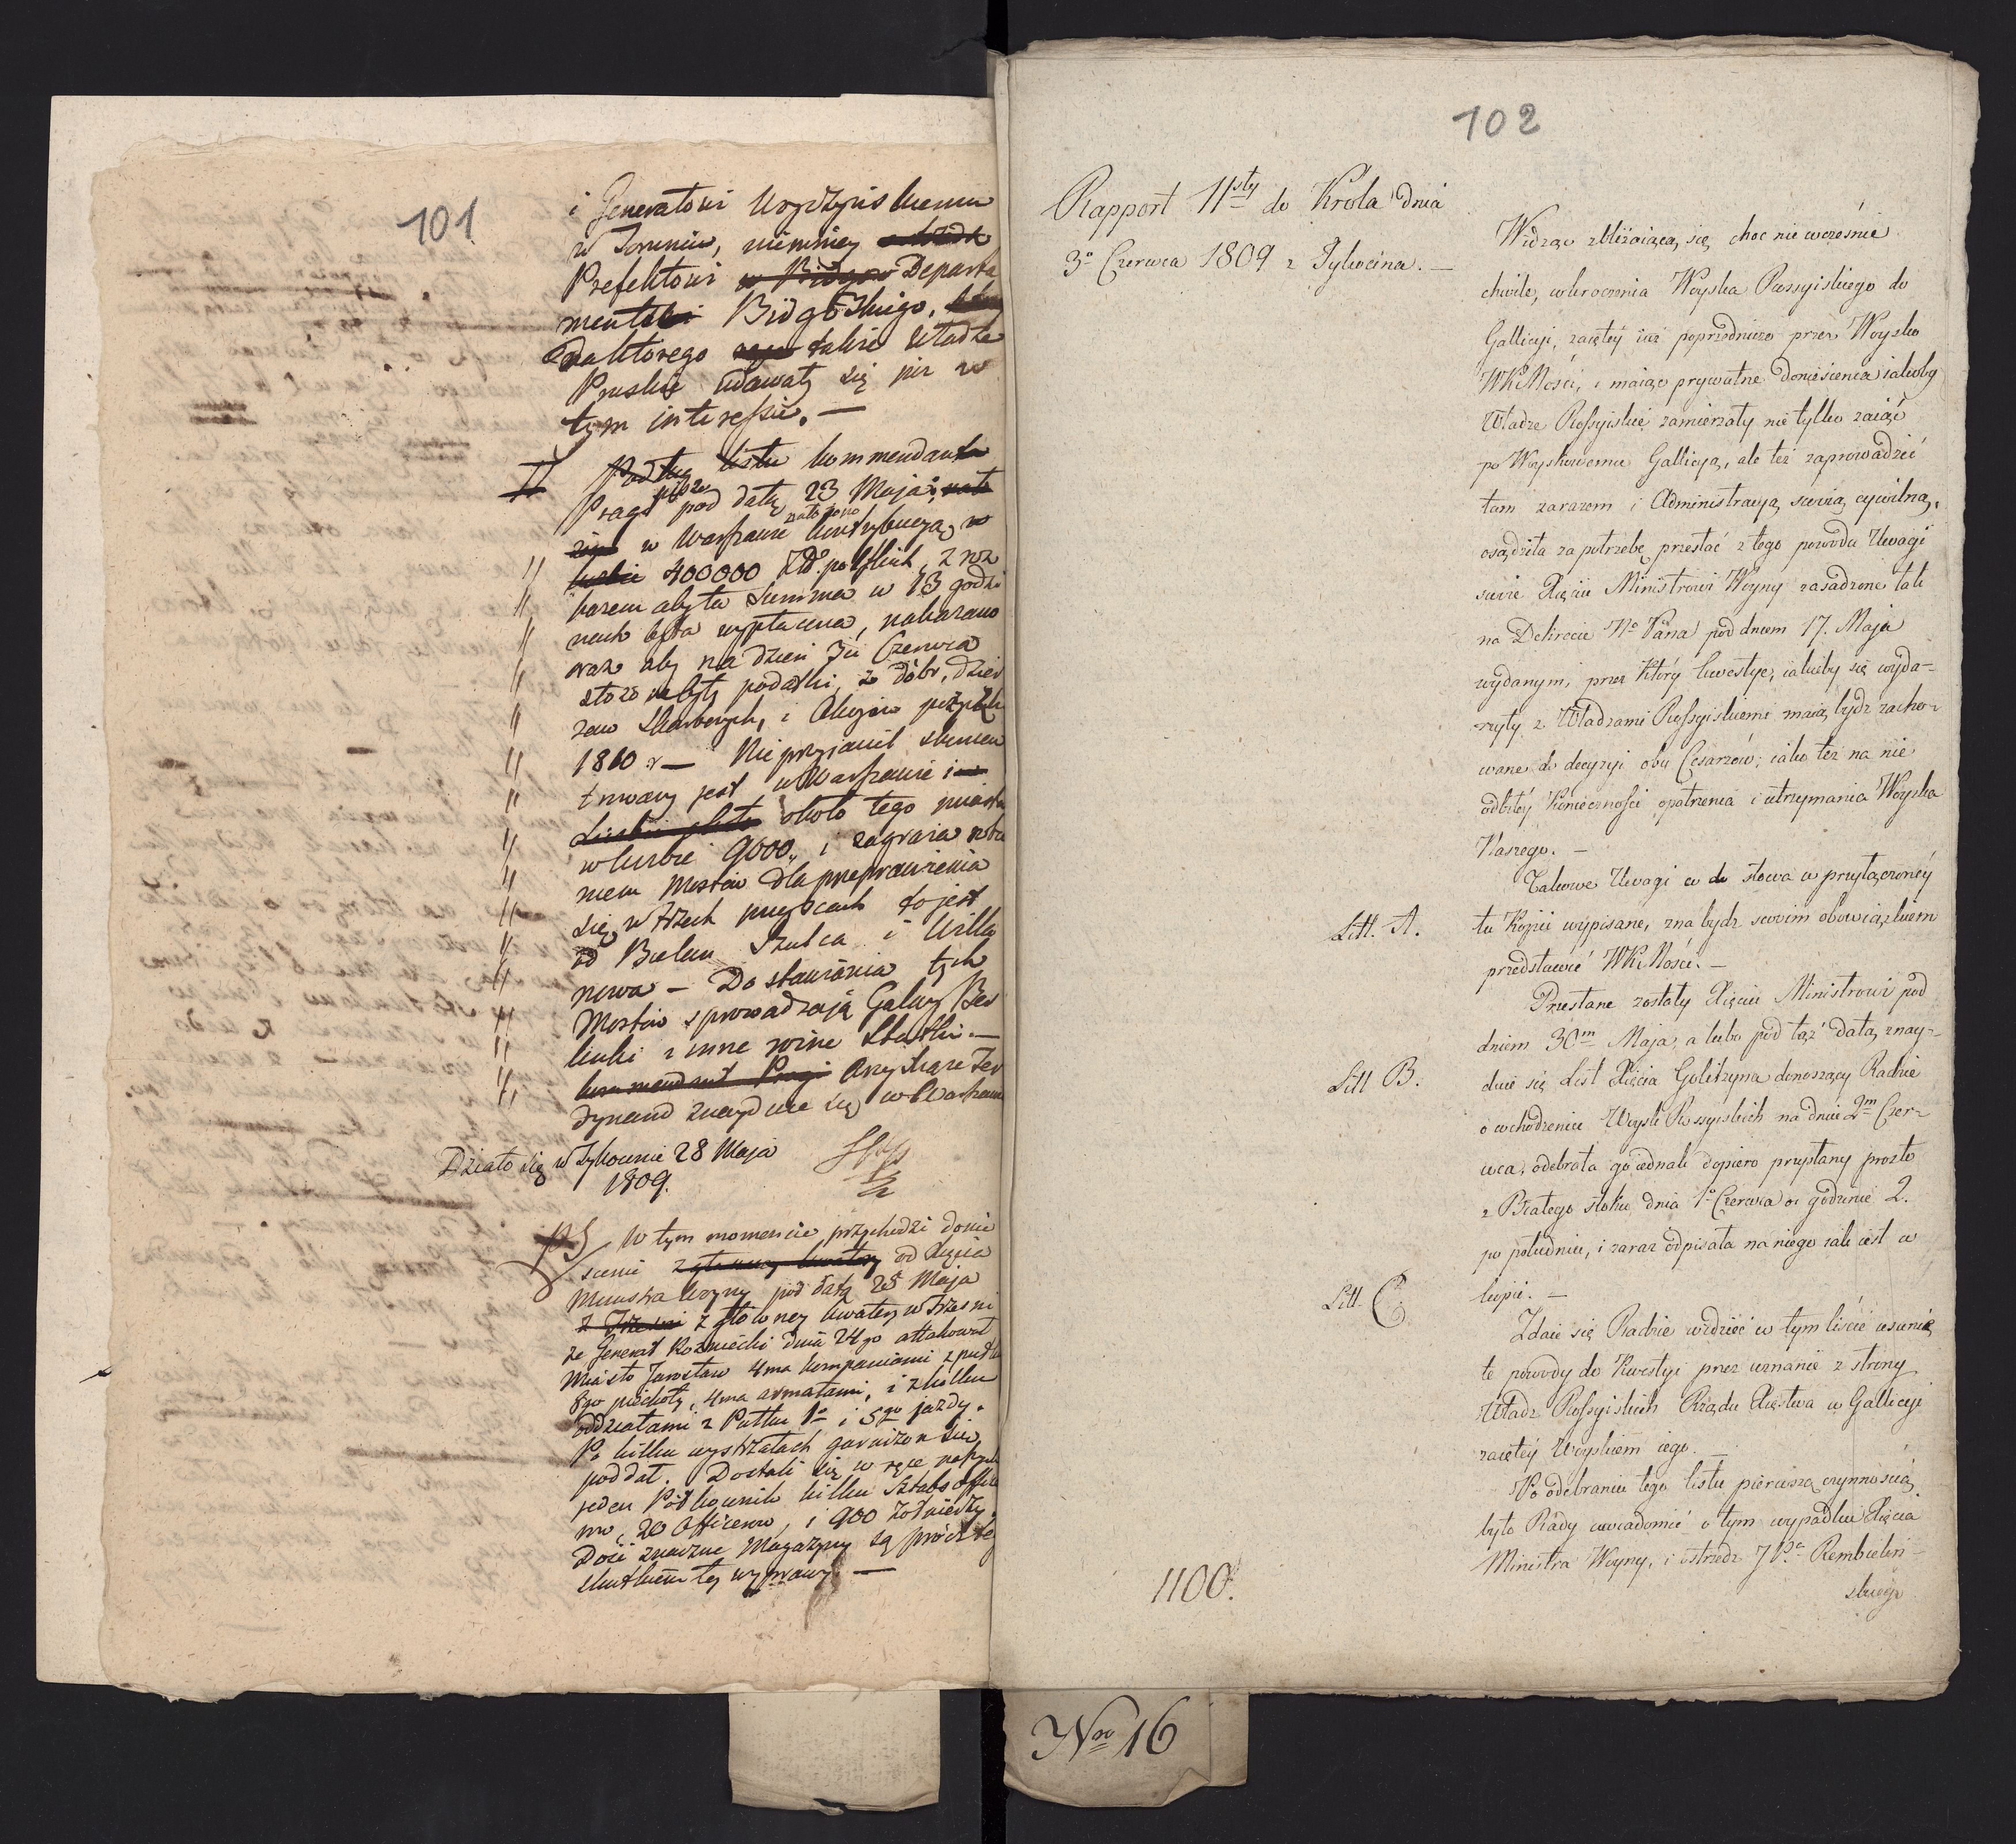 101
i Generałowi Woydzynskiemu
w Toruniu, niemniey
Prefektowi w Bidgow Departa
mentu Bidgoskiego,
Do którego także Władze
Pruskie udawały się już w
tym interessie. —
II Podług listu kommendanta
Pragi pisze pod datą 23 Maja,
w Warszawie nałożono kontrybucyą w
400000 Zło. polskich, z roz
kazem aby ta Summa w 13 godzi
nach była wypłacona, nakazano
oraz aby na dzień 3ii Czerwca
złożone były podatki, z dóbr, dzier
zaw Skarbowych, i
1810 r — Nieprzyjaciel skoncen
trowany jest w Warszawie i
około tego miasta
w liczbie 9000, i zagraża
niem Mostów dla przeprawienia
się w trzech mieyscach to jest
od Bielan Szulca i Willa
nowa — Do stawiania tych
Mostów sprowadzają Galary Ber
linki i inne rożne Statki. —
kommendant Pragi Arcyksiąże Fer
dynand znayduie się w Warszawie
Działo się w Tykocinie 28 Maja
1809.
PS W tym momencie przychodzi donie
sienie z głowney kwatery od Xięcia
Ministra Woyny pod datą 28 Maja
z Trzesni z głowney kwatery w Trzesni
że Generał Rozniecki dnia 24go attakował
Miasto Jarosław 4ma kompaniami z pułku
8go piechoty, 4ma armatami, i z kilku
oddziałami z Pułku 1o i 5go jazdy.
Po kilku wystrzałach garnizon się
poddał. Dostali się w ręce nasze
jeden Półkownik kilku Sztabs offi
row, 20 Officerow, i 900 żołnierzy.
Dość znaczne Magazyny są prócz tego
skutkiem tey wyprawy. —
102
Rapport 11sty do Krola dnia
3o Czerwca 1809 z Tykocina. —
Widząc zbliżaiącą się choc nie wcześnie
chwilę, wkroczenia Woyska Rossyiskiego do
Gallicyi, zaiętey iuż poprzedniczo przez Woysko
WKMości, i maiąc prywatne doniesienia iakoby
Władze Rossyiskie zamierzały nie tylko zaiąć
po Woyskowemu Gallicyą, ale też zaprowadzić
tam zarazem i Administracyą swoią cywilną,
osądziła za potrzebę przesłać z tego powodu Uwagi
swoie Xięciu Ministrowi Woyny zasadzone tak
na Dekrecie No Pana pod dniem 17. Maja
wydanym, przez który kwestye, iakieby się wyda-
rzyły z Władzami Rossyiskiemi maią bydz zacho-
wane do decyzyi obu Cesarzów; iako też na nie
odbitey konieczności opatrzenia i utrzymania Woyska
Naszego. —
Takowe Uwagi co do słowa w przyłączoney
Litt. A. tu Kopii wypisane, zna bydz swoim obowiązkiem
przedstawić WKMości. —
Przesłane zostały Xięciu Ministrowi pod
dniem 30m Maja, a lubo pod tąż datą znay-
Litt B. duie się List Xięcia Golitzyna donoszący Radzie
o wchodzeniu Woysk Rossyiskich na dniu 2m Czer-
wca, odebrała go iednak dopiero przysłany prosto
z Białego stoku dnia 1o Czerwca o godzinie 2.
po południu, i zaraz odpisała na niego iak iest w
Litt. C kopii. —
Zdaie się Radzie widzieć w tym liście usunię
te powody do Kwestyi przez uznanie z strony
Władz Rossyiskich Rządu Xięstwa w Gallicyi
zaiętey Woyskiem iego.
Po odebraniu tego listu pierwszą czynnością
było Rady uwiadomić o tym wypadku Xięcia
Ministra Woyny, i ostrzedz JPa Rembielin-
skiego
1100.
Nro 16